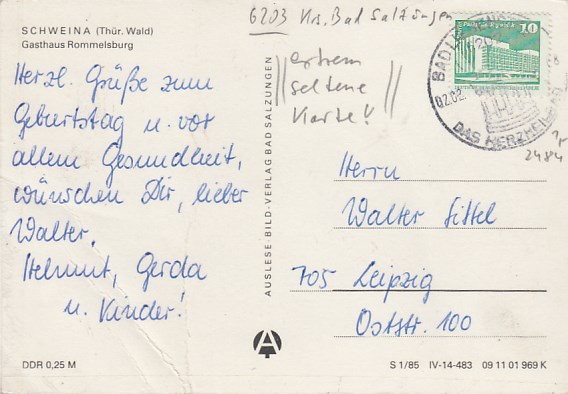 SCHWEINA (Thür. Wald)
Gasthaus Rommelsburg
Herzl. Grüße zum
Geburtstag u. vor
allem Gesundheit,
wünschen Dir, lieber
Walter,
Helmut, Gerda
u. Kinder!
DDR 0,25 M
AUSLESE-BILD-VERLAG BAD SALZUNGEN
6203 Krs. Bad Salzungen
extrem
seltene
Karte!
10
BAD LIEBENSTEIN
02.02.
DAS HERZHEILBAD
2484
Herrn
Walter Sittel
705 Leipzig
Oststr. 100
A
S 1/85 IV-14-483 09 11 01 969 K